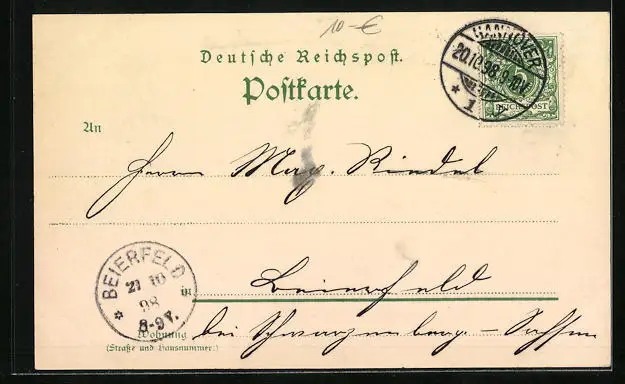 10-€
Deutsche Reichspost.
Postkarte.
HANNOVER
20.10.98.9-10V.
* 1
REICHSPOST
An
Herrn Max Riedel
BEIERFELD
21 10
98
8-9V.
*
in Beierfeld
bei Schwarzenberg – Sachsen
Wohnung
(Straße und Hausnummer)